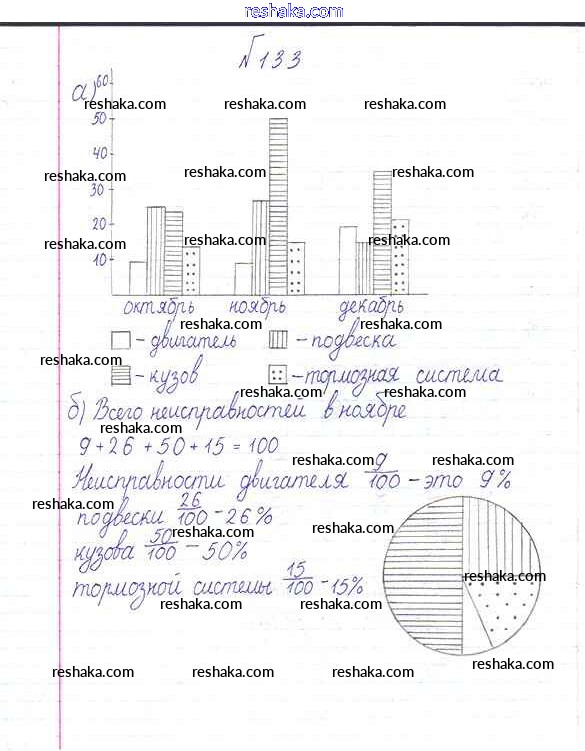 reshaka.com
№133
а)
60
50
40
30
20
10
октябрь ноябрь декабрь
- двигатель - подвеска
- кузов - тормозная система
б) Всего неисправностей в ноябре
9 + 26 + 50 + 15 = 100
Неисправности двигателя 9/100 - это 9%
подвески 26/100 - 26%
кузова 50/100 - 50%
тормозной системы 15/100 - 15%
reshaka.com reshaka.com reshaka.com
reshaka.com reshaka.com reshaka.com
reshaka.com reshaka.com reshaka.com
reshaka.com reshaka.com
reshaka.com reshaka.com
reshaka.com reshaka.com
reshaka.com reshaka.com
reshaka.com
reshaka.com
reshaka.com
reshaka.com reshaka.com
reshaka.com
reshaka.com reshaka.com reshaka.com